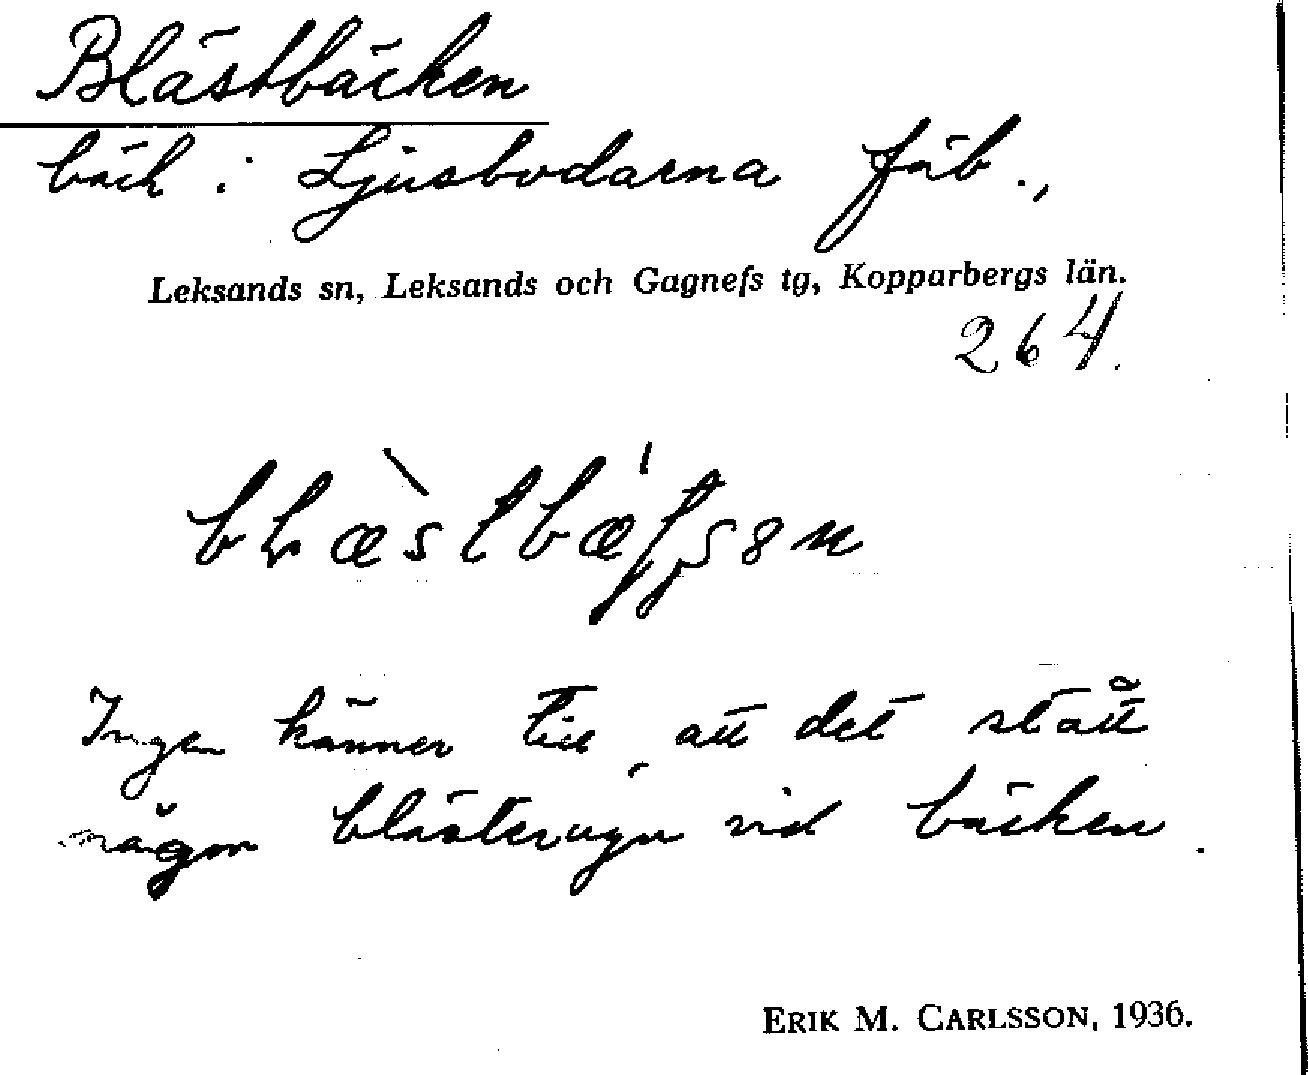 Blästbäcken
bäck i Ljusbodarna fäb.,
Leksands sn, Leksands och Gagnefs tg, Kopparbergs län.
264.
Ingen känner till, att det stått
någon blästerugn vid bäcken.
ERIK M. CARLSSON, 1936.